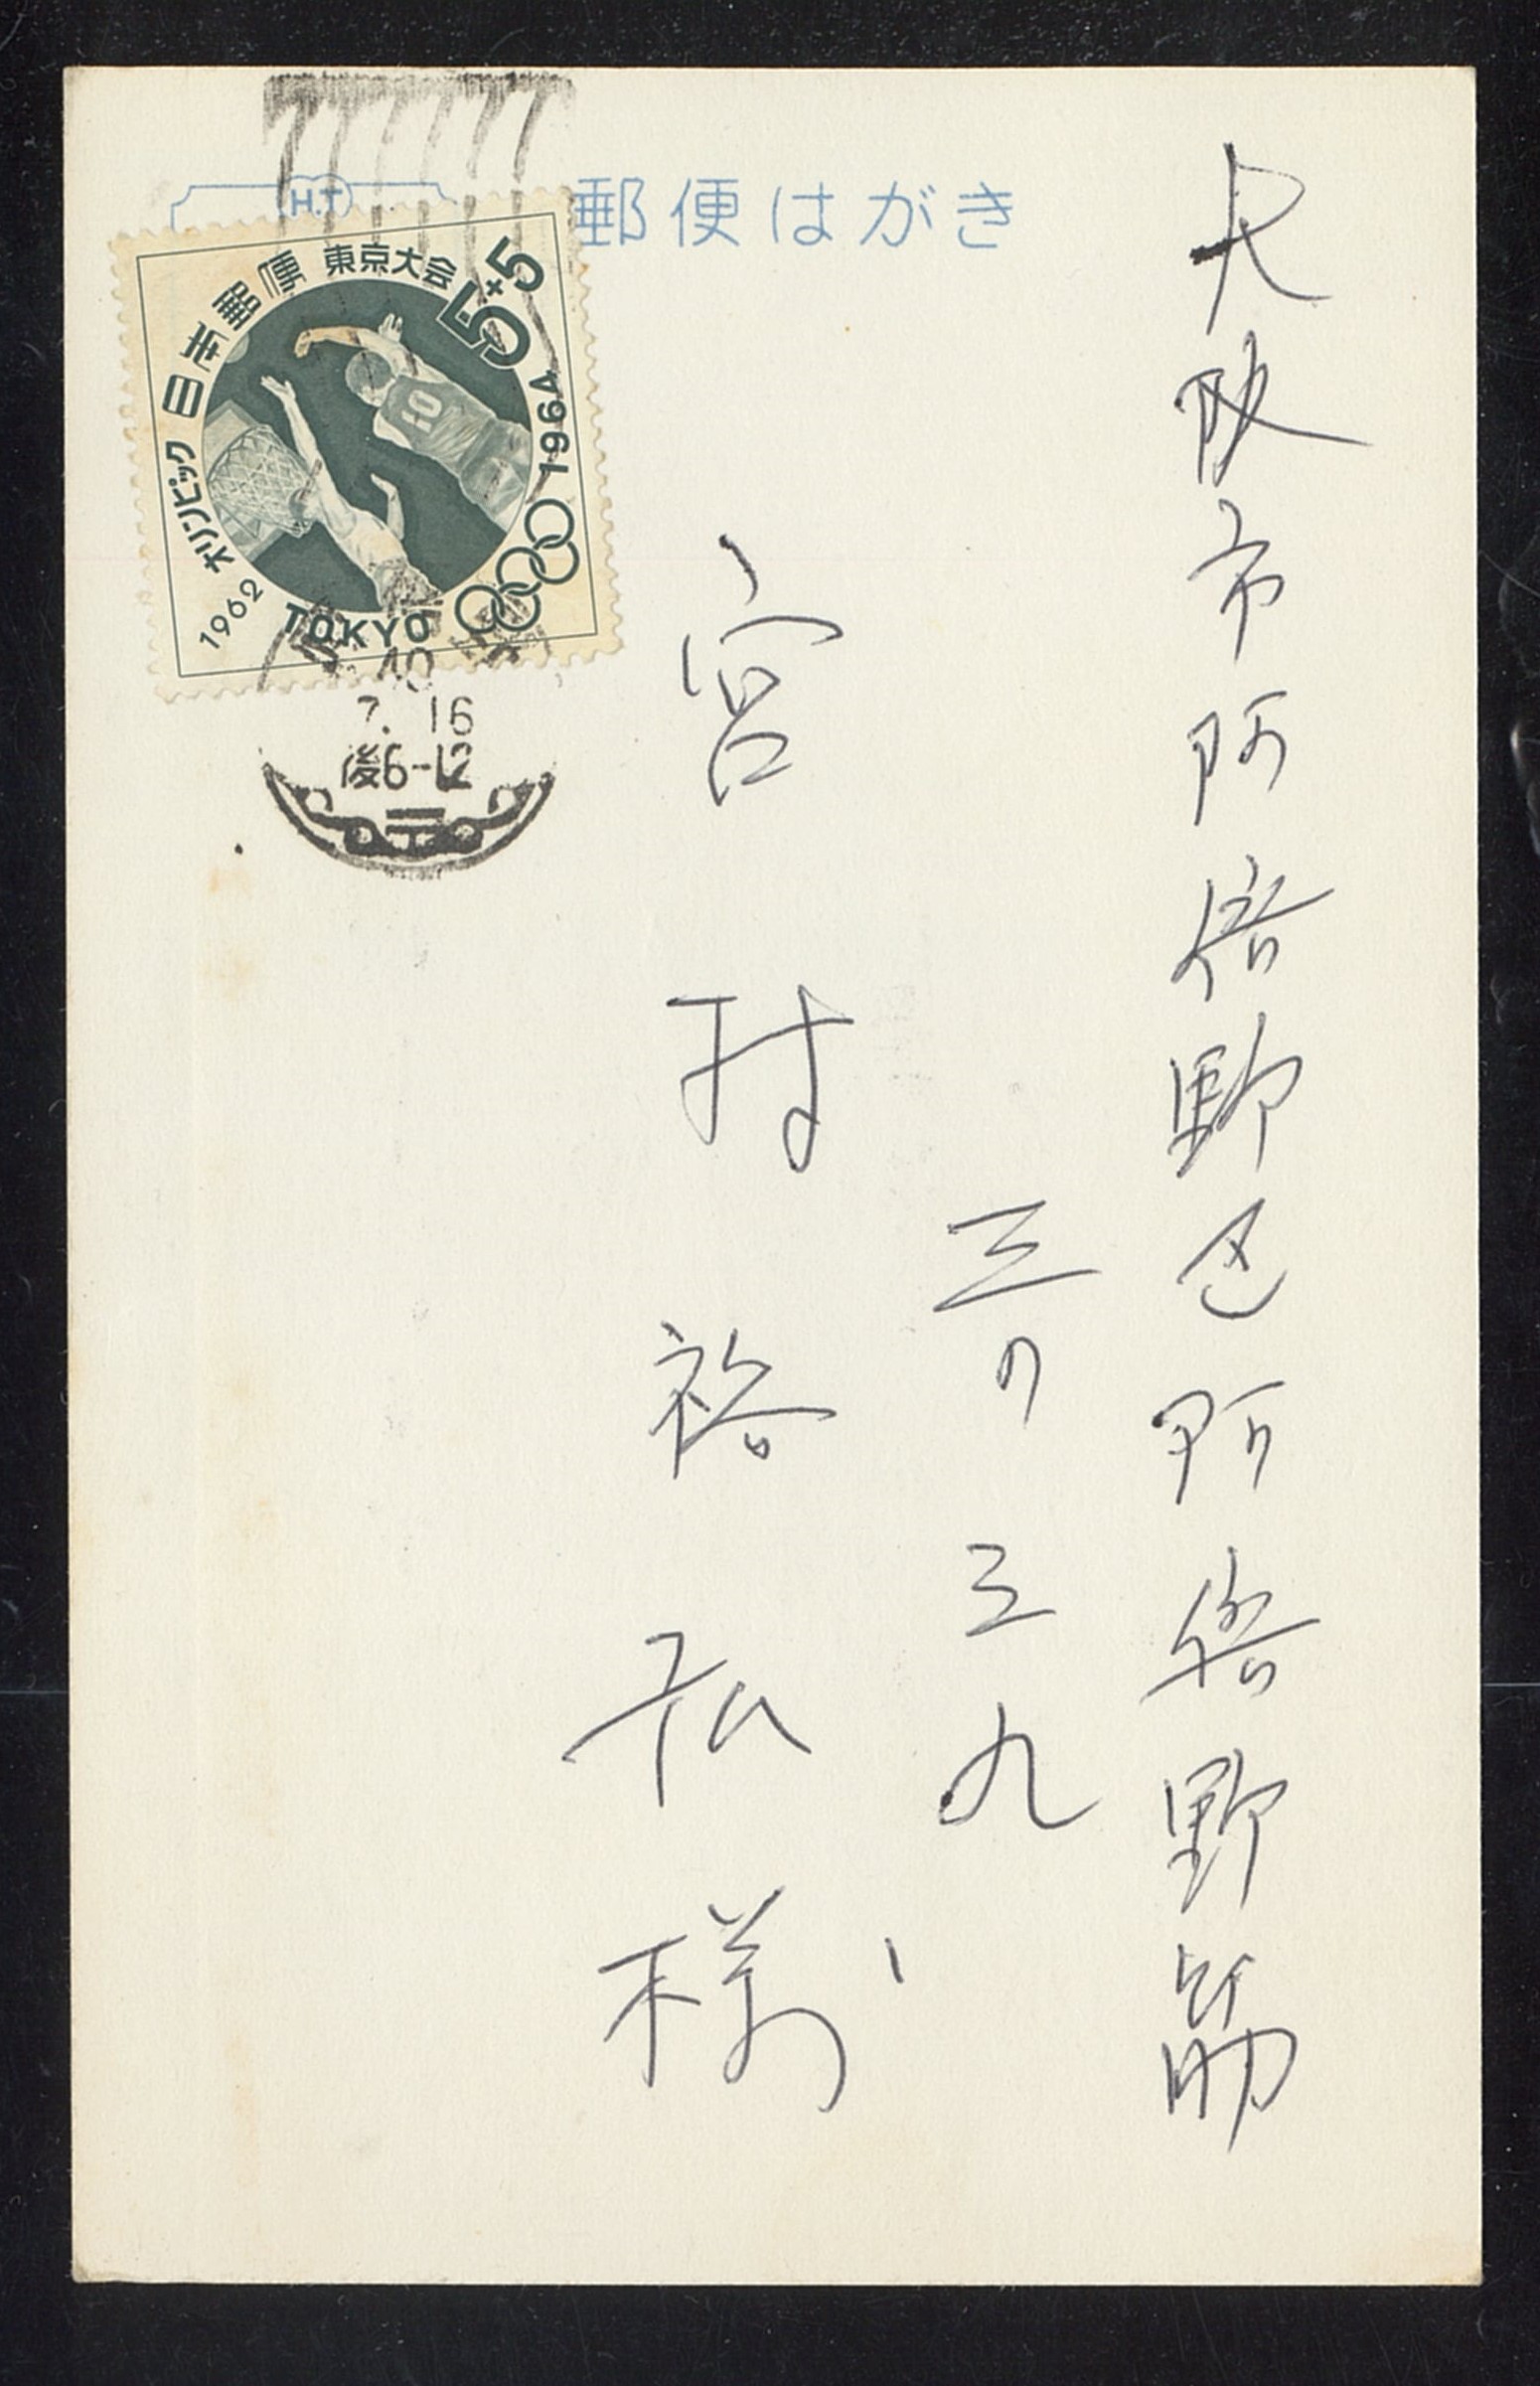 郵便はがき
H.T
日本郵便
東京大会
5+5
オリンピック
1964
1962
TOKYO
10
40
7. 16
後6-12
大阪市阿倍野区阿倍野筋
三ノ三九
宮村裕弘様